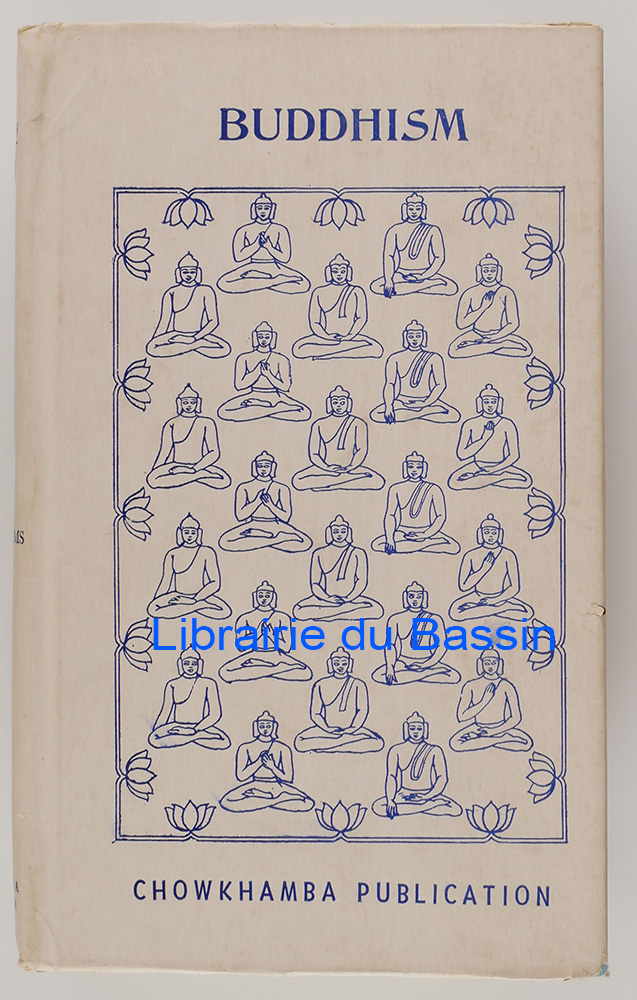 BUDDHISM
Librairie du Bassin
CHOWKHAMBA PUBLICATION